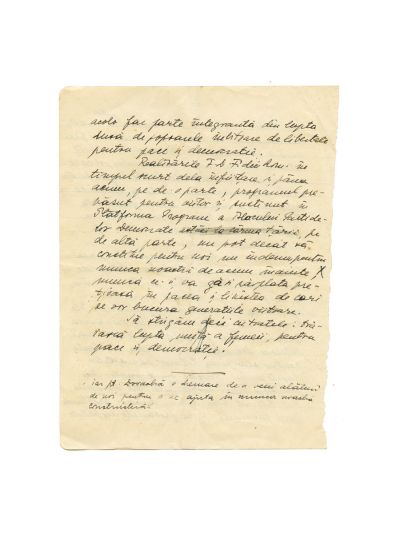 acolo fac parte integrantă din lupta
dusă de popoarele iubitoare de libertate
pentru pace și democrație.
Realizările F.D.F. din Rom. în
timpul scurt dela înființare și până
acum, pe de o parte, programul pre-
văzut pentru viitor și susținut în
Platforma Program a Blocului Partide-
lor Democrate pe
de altă parte, nu pot decât să
constitue pentru noi un îndemn pentru
munca noastră de acum înainte X
muncă ce-și va găsi răsplata pre-
țioasă în pacea și liniștea de cari
se vor bucura generațiile viitoare.
Să strigăm deci cu toatele: tră-
iască lupta unită a femeii, pentru
pace și democrație!
iar pt. o chemare de a veni alături
de noi pentru a ne ajuta în munca noastră
constructivă.